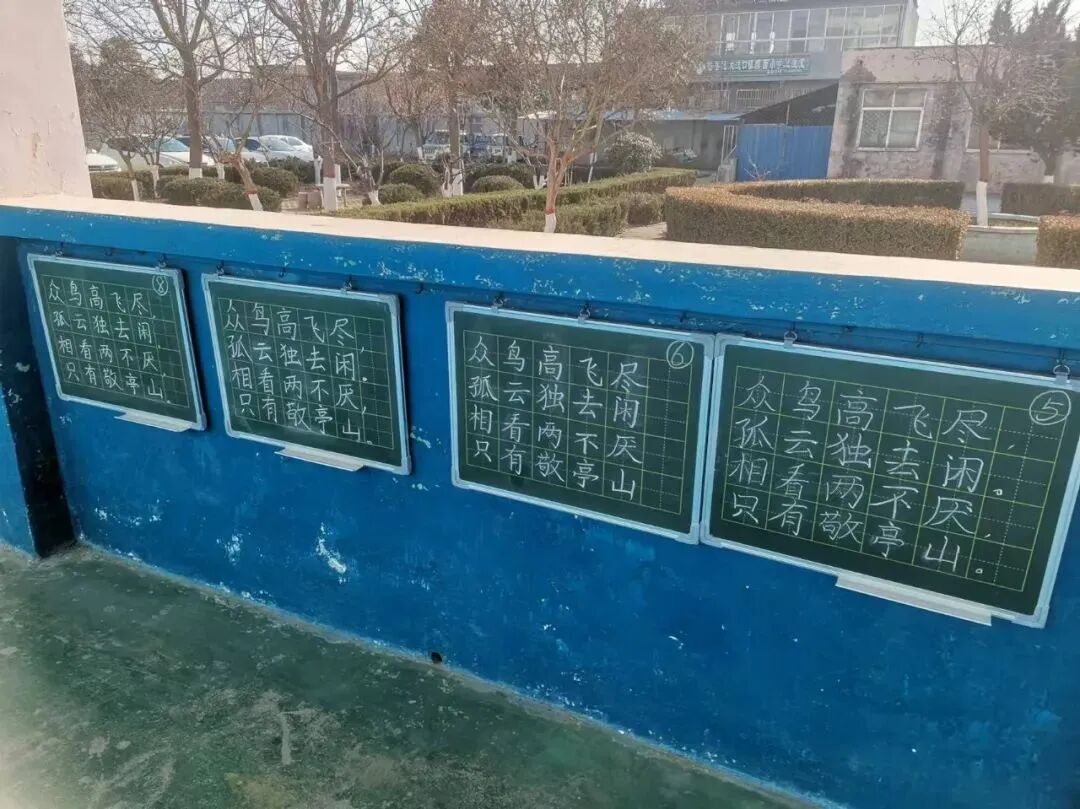 ⑧
众鸟高飞尽
孤云独去闲
相看两不厌
只有敬亭山.
众鸟高飞尽,
孤云独去闲。
相看两不厌,
只有敬亭山.
⑥
众鸟高飞尽
孤云独去闲
相看两不厌
只有敬亭山
⑤
众鸟高飞尽,
孤云独去闲。
相看两不厌,
只有敬亭山。